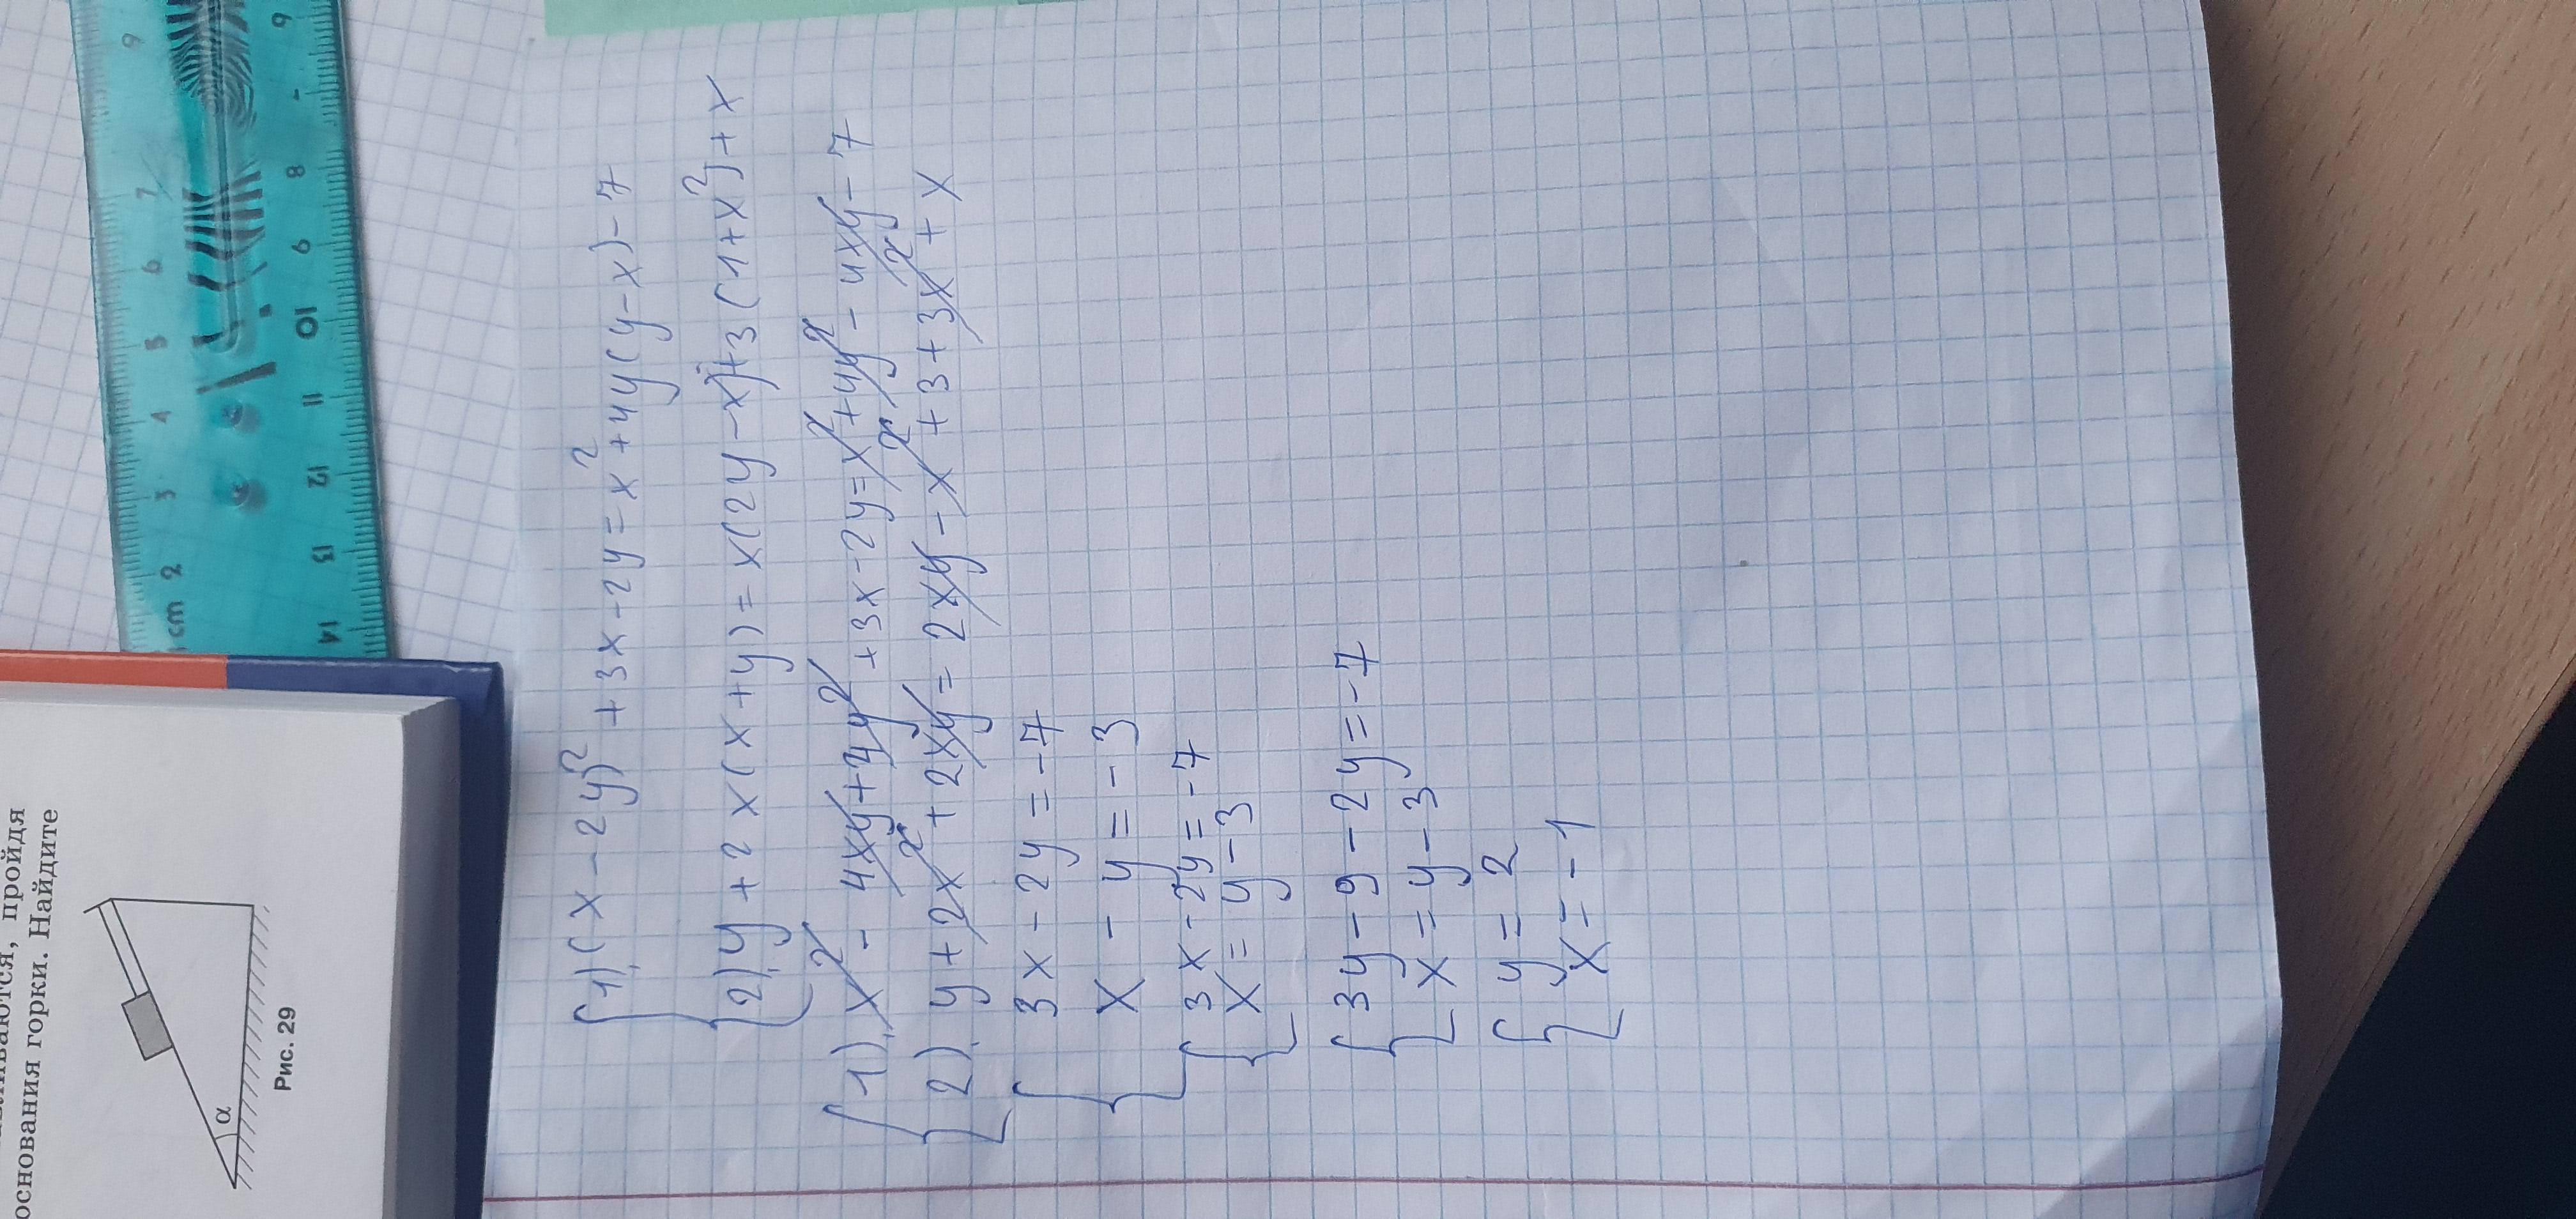 пройдя
основания горки. Найдите
α
Рис. 29
cm 2 3 4 5 6 7
14 13 12 11 10 9 8
1) (x - 2y)² + 3x - 2y = x² + 4y(y - x) - 7
2) y + 2x(x + y) = x(2y - x) + 3(1 + x²) + x
1) x² - 4xy + 4y² + 3x - 2y = x² + 4y² - 4xy - 7
2) y + 2x² + 2xy = 2xy - x² + 3 + 3x² + x
3x - 2y = -7
x - y = -3
3x - 2y = -7
x = y - 3
3y - 9 - 2y = -7
x = y - 3
y = 2
x = -1